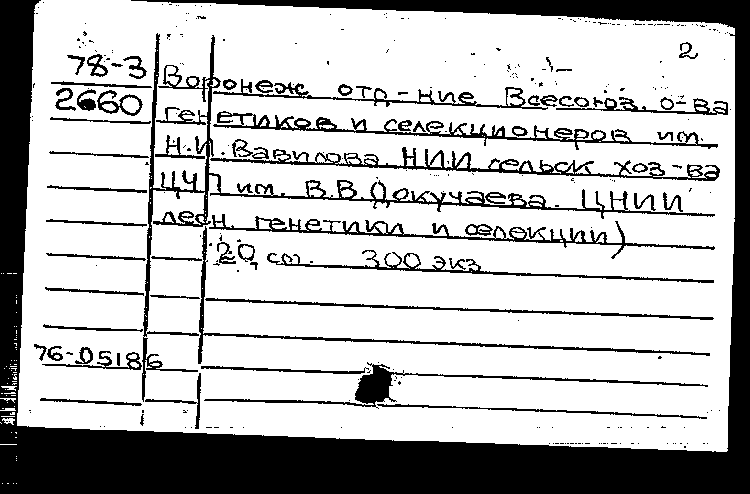 2
78-3 Воронеж. отд-ние Всесоюз. о-ва
2660 генетиков и селекционеров им.
Н.И. Вавилова. НИИ сельск хоз-ва
ЦЧП им. В.В. Докучаева. ЦНИИ
лесн. генетики и селекции)
20 см. 300 экз
76-D5186